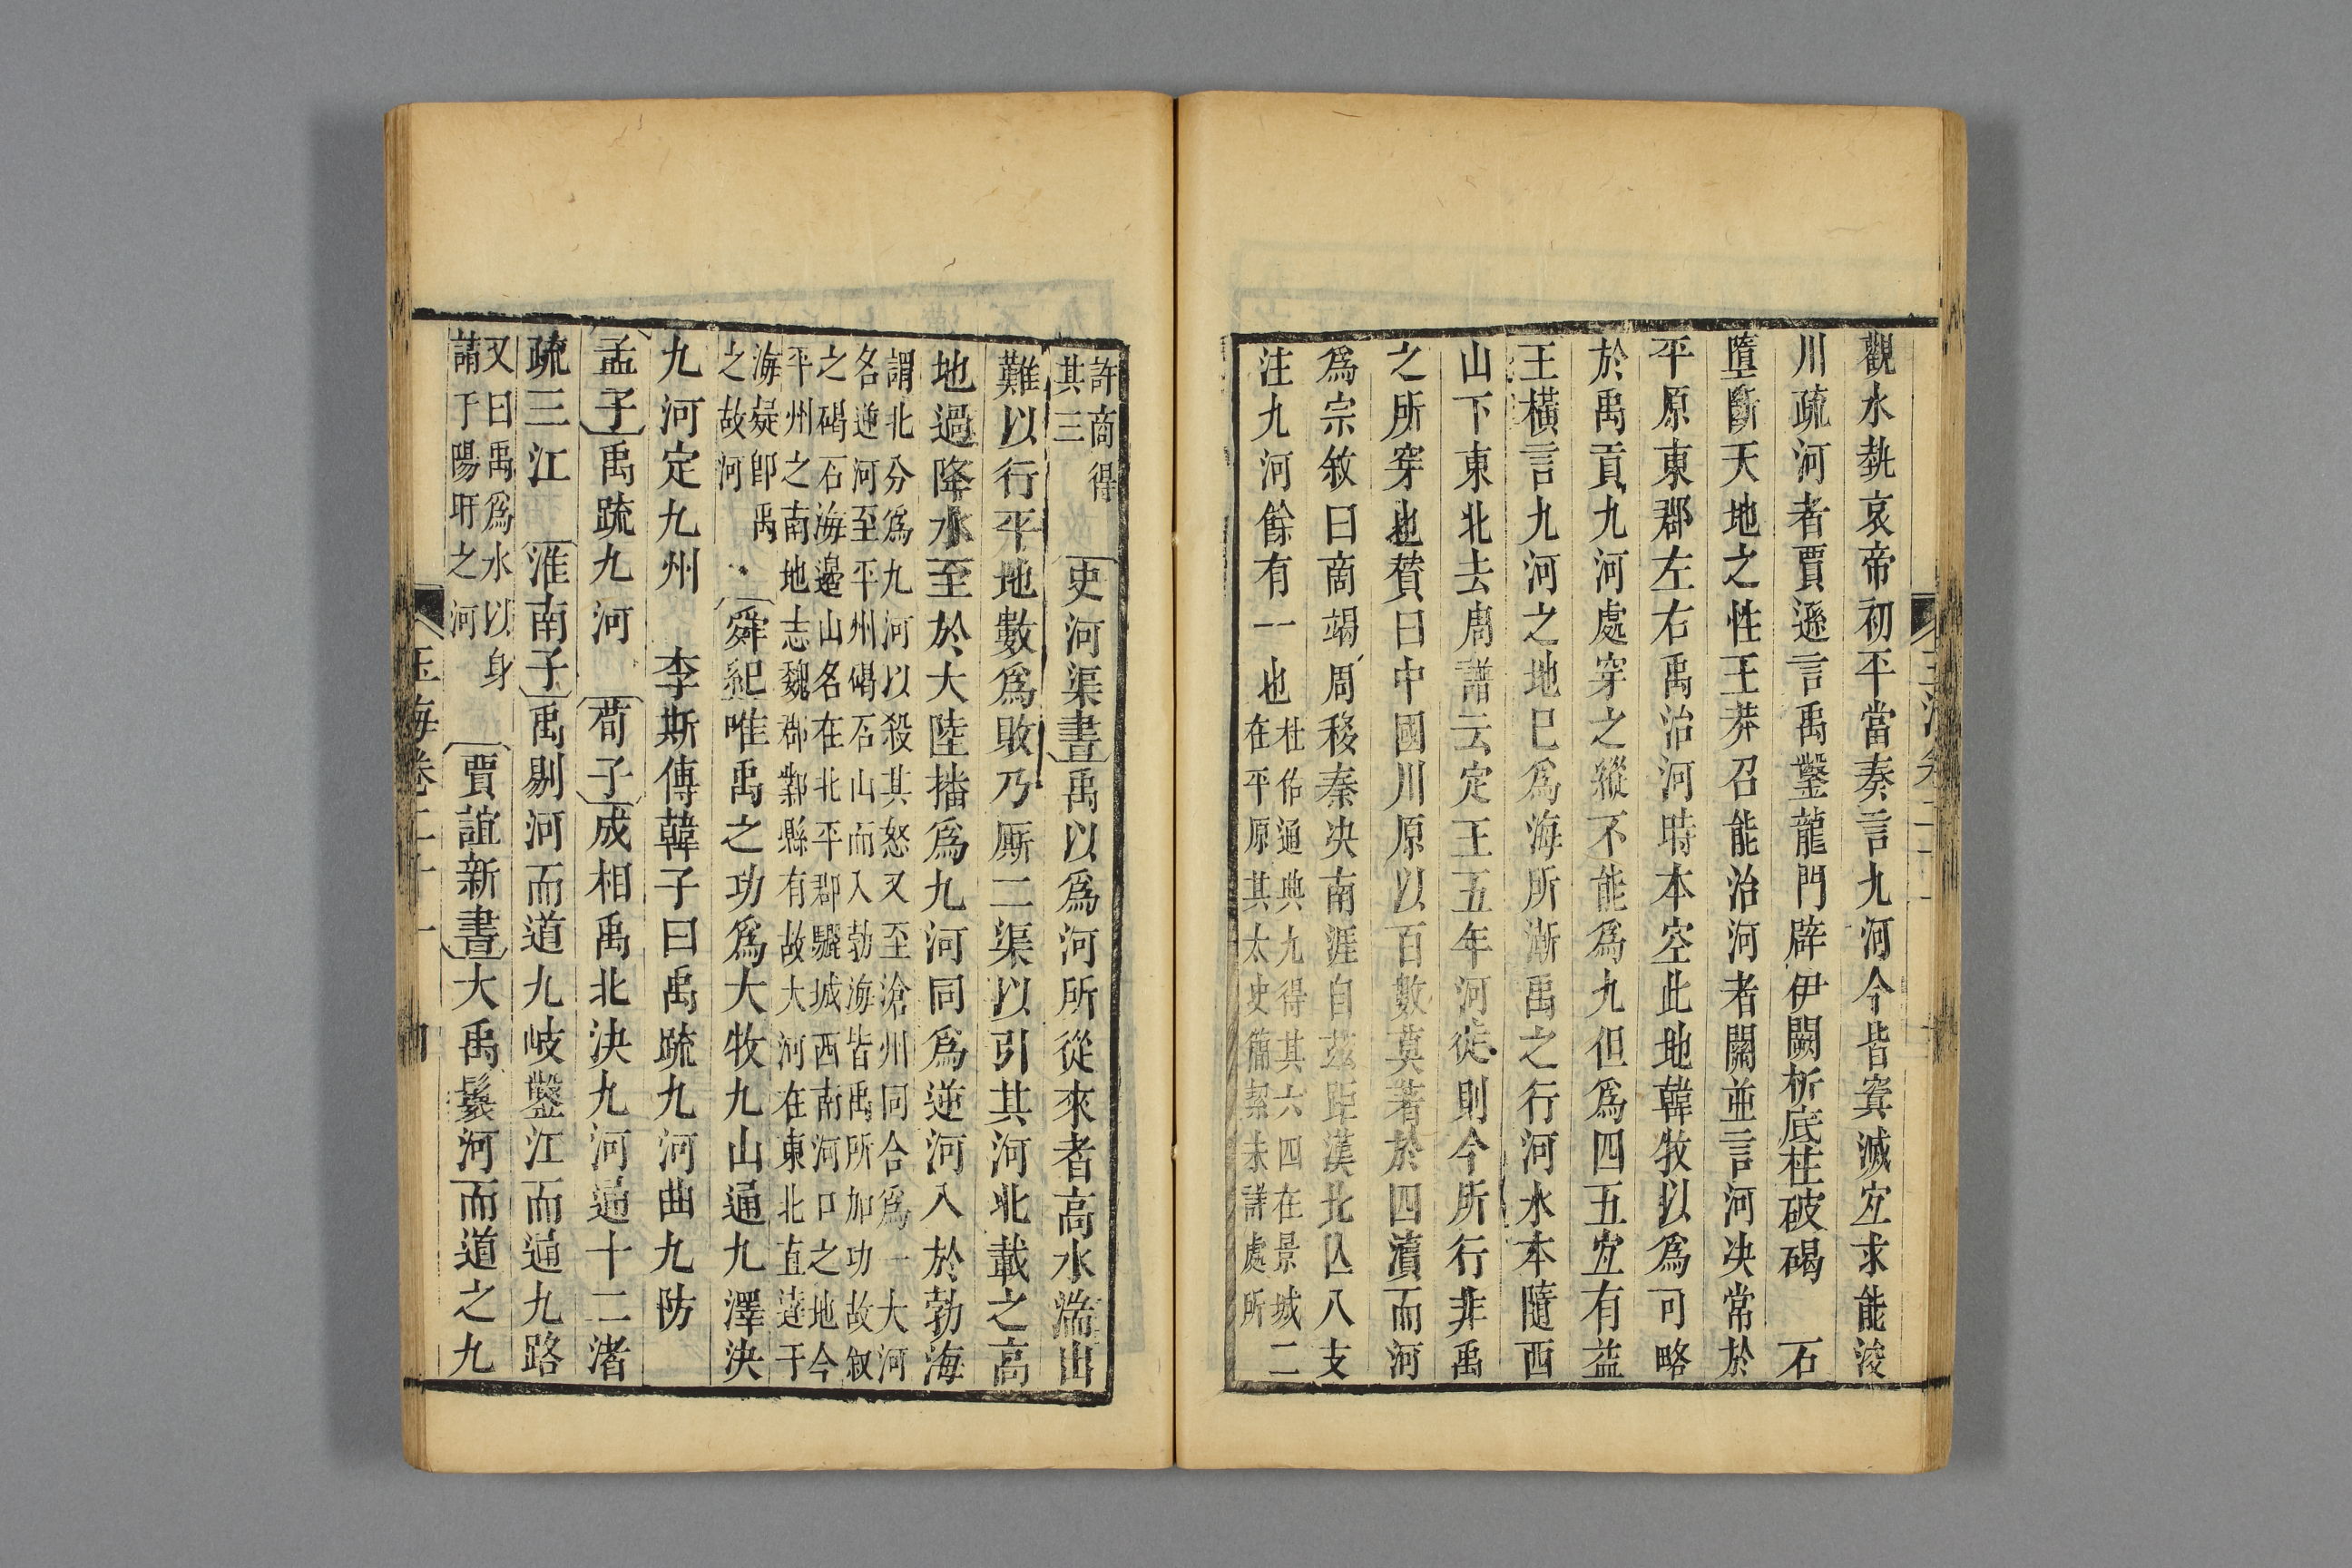 觀水埶哀帝初平當奏言九河今皆寘滅宜求能浚
川疏河者賈遜言禹鑿龍門辟伊闕析底柱破碣 石
墮斷天地之性王莽召能治河者關並言河决常於
平原東郡左右禹治河時本空此地韓牧以爲可略
於禹貢九河處穿之縱不能爲九但爲四五宜有益
王橫言九河之地巳爲海所漸禹之行河水本隨西
山下東北去周譜云定王五年河徙則今所行非禹
之所穿也贊曰中國川原以百數莫著於四瀆而河
爲宗敘曰商竭周移秦决南涯自茲距漢北亾八支
注九河餘有一也
杜佑通典九得其六四在景城二
在平原其太史簡絜未詳處所
許商得
其三
史河渠書禹以爲河所從來者高水湍山
難以行平地數爲敗乃厮二渠以引其河北載之高
地過降水至於大陸播爲九河同爲逆河入於勃海
謂北分爲九河以殺其怒又至滄州同合爲一大河
名逆河至平州碣石山而入勃海皆禹所加功故叙
之碣石海邉山名在北平郡驪城西南河口之地今
平州之南地志魏郡鄴縣有故大河在東北直達于
海疑卽禹
之故河
舜紀唯禹之功爲大牧九山通九澤決
九河定九州 李斯傳韓子曰禹疏九河曲九防
孟子禹疏九河 荀子成相禹北決九河通十二渚
疏三江 淮南子禹剔河而道九岐鑿江而通九路
又曰禹爲水以身
請于陽盱之河
賈誼新書大禹鬟河而道之九
玉海卷二十一